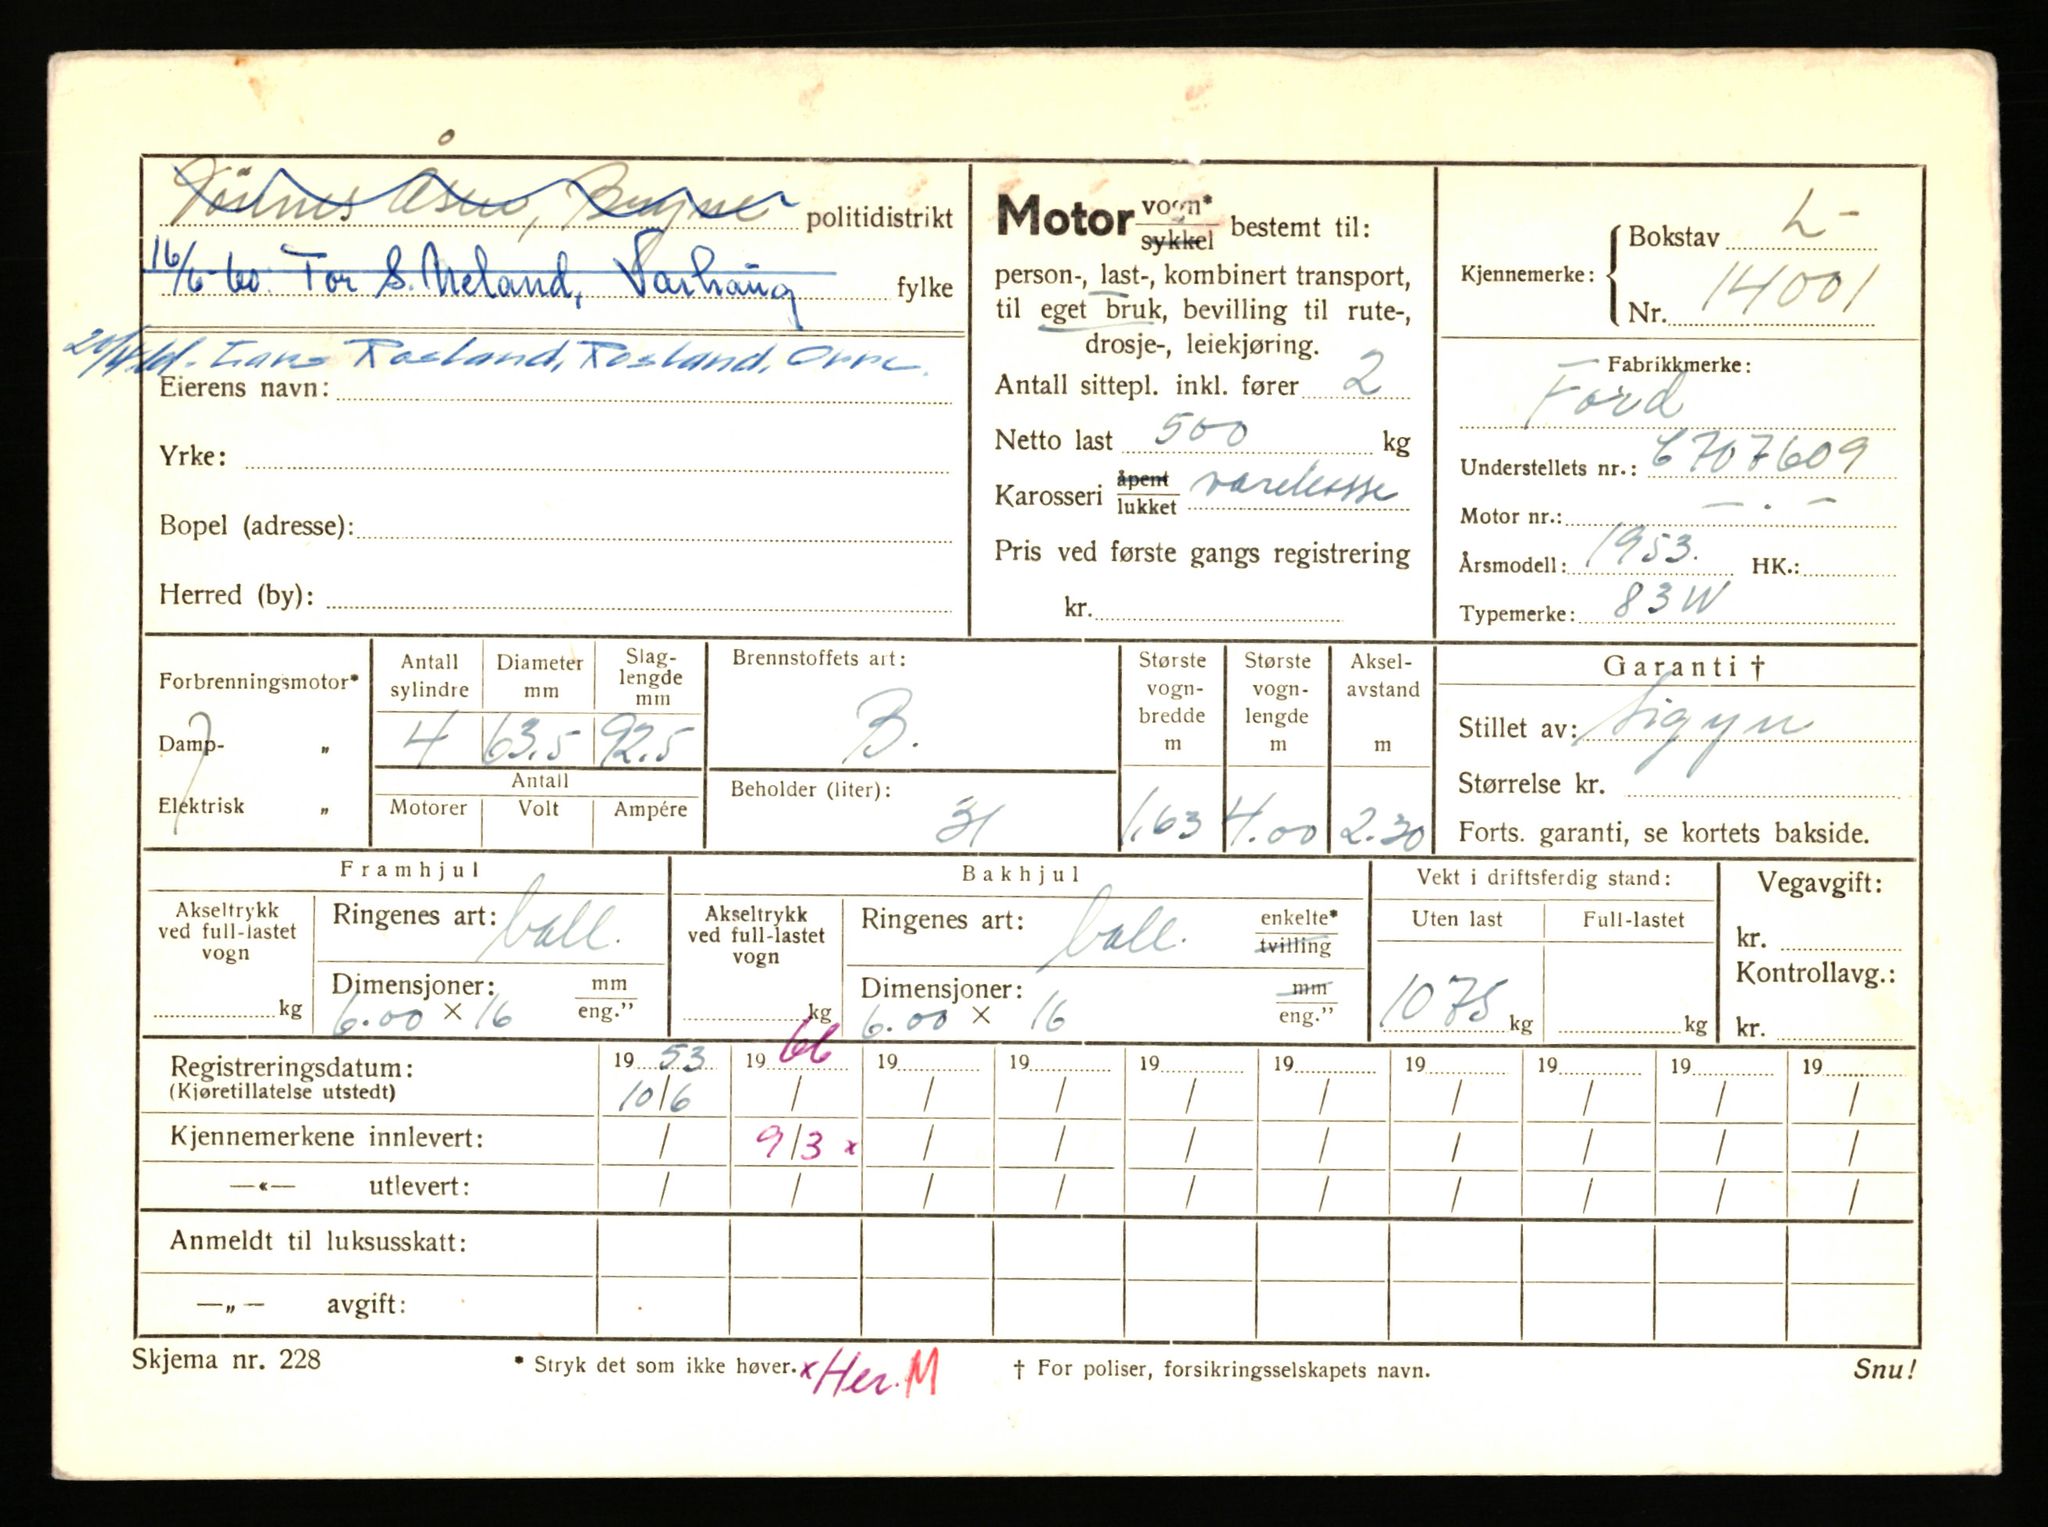 Åsen, Bryne politidistrikt
16/6-60. Tor S. Neland, Varhaug fylke
Lars Rosland, Rosland, Orre.
Eierens navn:
Yrke:
Bopel (adresse):
Herred (by):
Motor vogn* sykkel bestemt til:
person-, last-, kombinert transport,
til eget bruk, bevilling til rute-,
drosje-, leiekjøring.
Antall sittepl. inkl. fører 2
Netto last 500 kg
Karosseri åpent lukket varekasse
Pris ved første gangs registrering
kr.
Kjennemerke: Bokstav L-
Nr. 14001
Fabrikkmerke:
Ford
Understellets nr.: C707609
Motor nr.: - . -
Årsmodell: 1953. HK.:
Typemerke: 83W
Forbrenningsmotor*
Damp- „
Elektrisk „
Antall sylindre 4
Diameter mm 63.5
Slag-lengde mm 92.5
Antall
Motorer Volt Ampére
Brennstoffets art: B.
Beholder (liter): 31
Største vogn-bredde m 1,63
Største vogn-lengde m 4.00
Aksel-avstand m 2.30
Garanti †
Stillet av: Sigyn
Størrelse kr.
Forts. garanti, se kortets bakside.
Framhjul
Akseltrykk ved full-lastet vogn
kg
Ringenes art: ball.
Dimensjoner: mm eng."
6.00 × 16
Bakhjul
Akseltrykk ved full-lastet vogn
kg
Ringenes art: ball. enkelte* tvilling
Dimensjoner: mm eng."
6.00 × 16
Vekt i driftsferdig stand:
Uten last Full-lastet
1075 kg kg
Vegavgift:
kr.
Kontrollavg.:
kr.
Registreringsdatum: 19 53 19 66 19 19 19 19 19 19 19 19
(Kjøretillatelse utstedt) 10/6 / / / / / / / / /
Kjennemerkene innlevert: / 9/3 x / / / / / / / /
—«— utlevert: / / / / / / / / / /
Anmeldt til luksusskatt:
—„— avgift:
Skjema nr. 228 * Stryk det som ikke høver. x Her. M † For poliser, forsikringsselskapets navn. Snu!